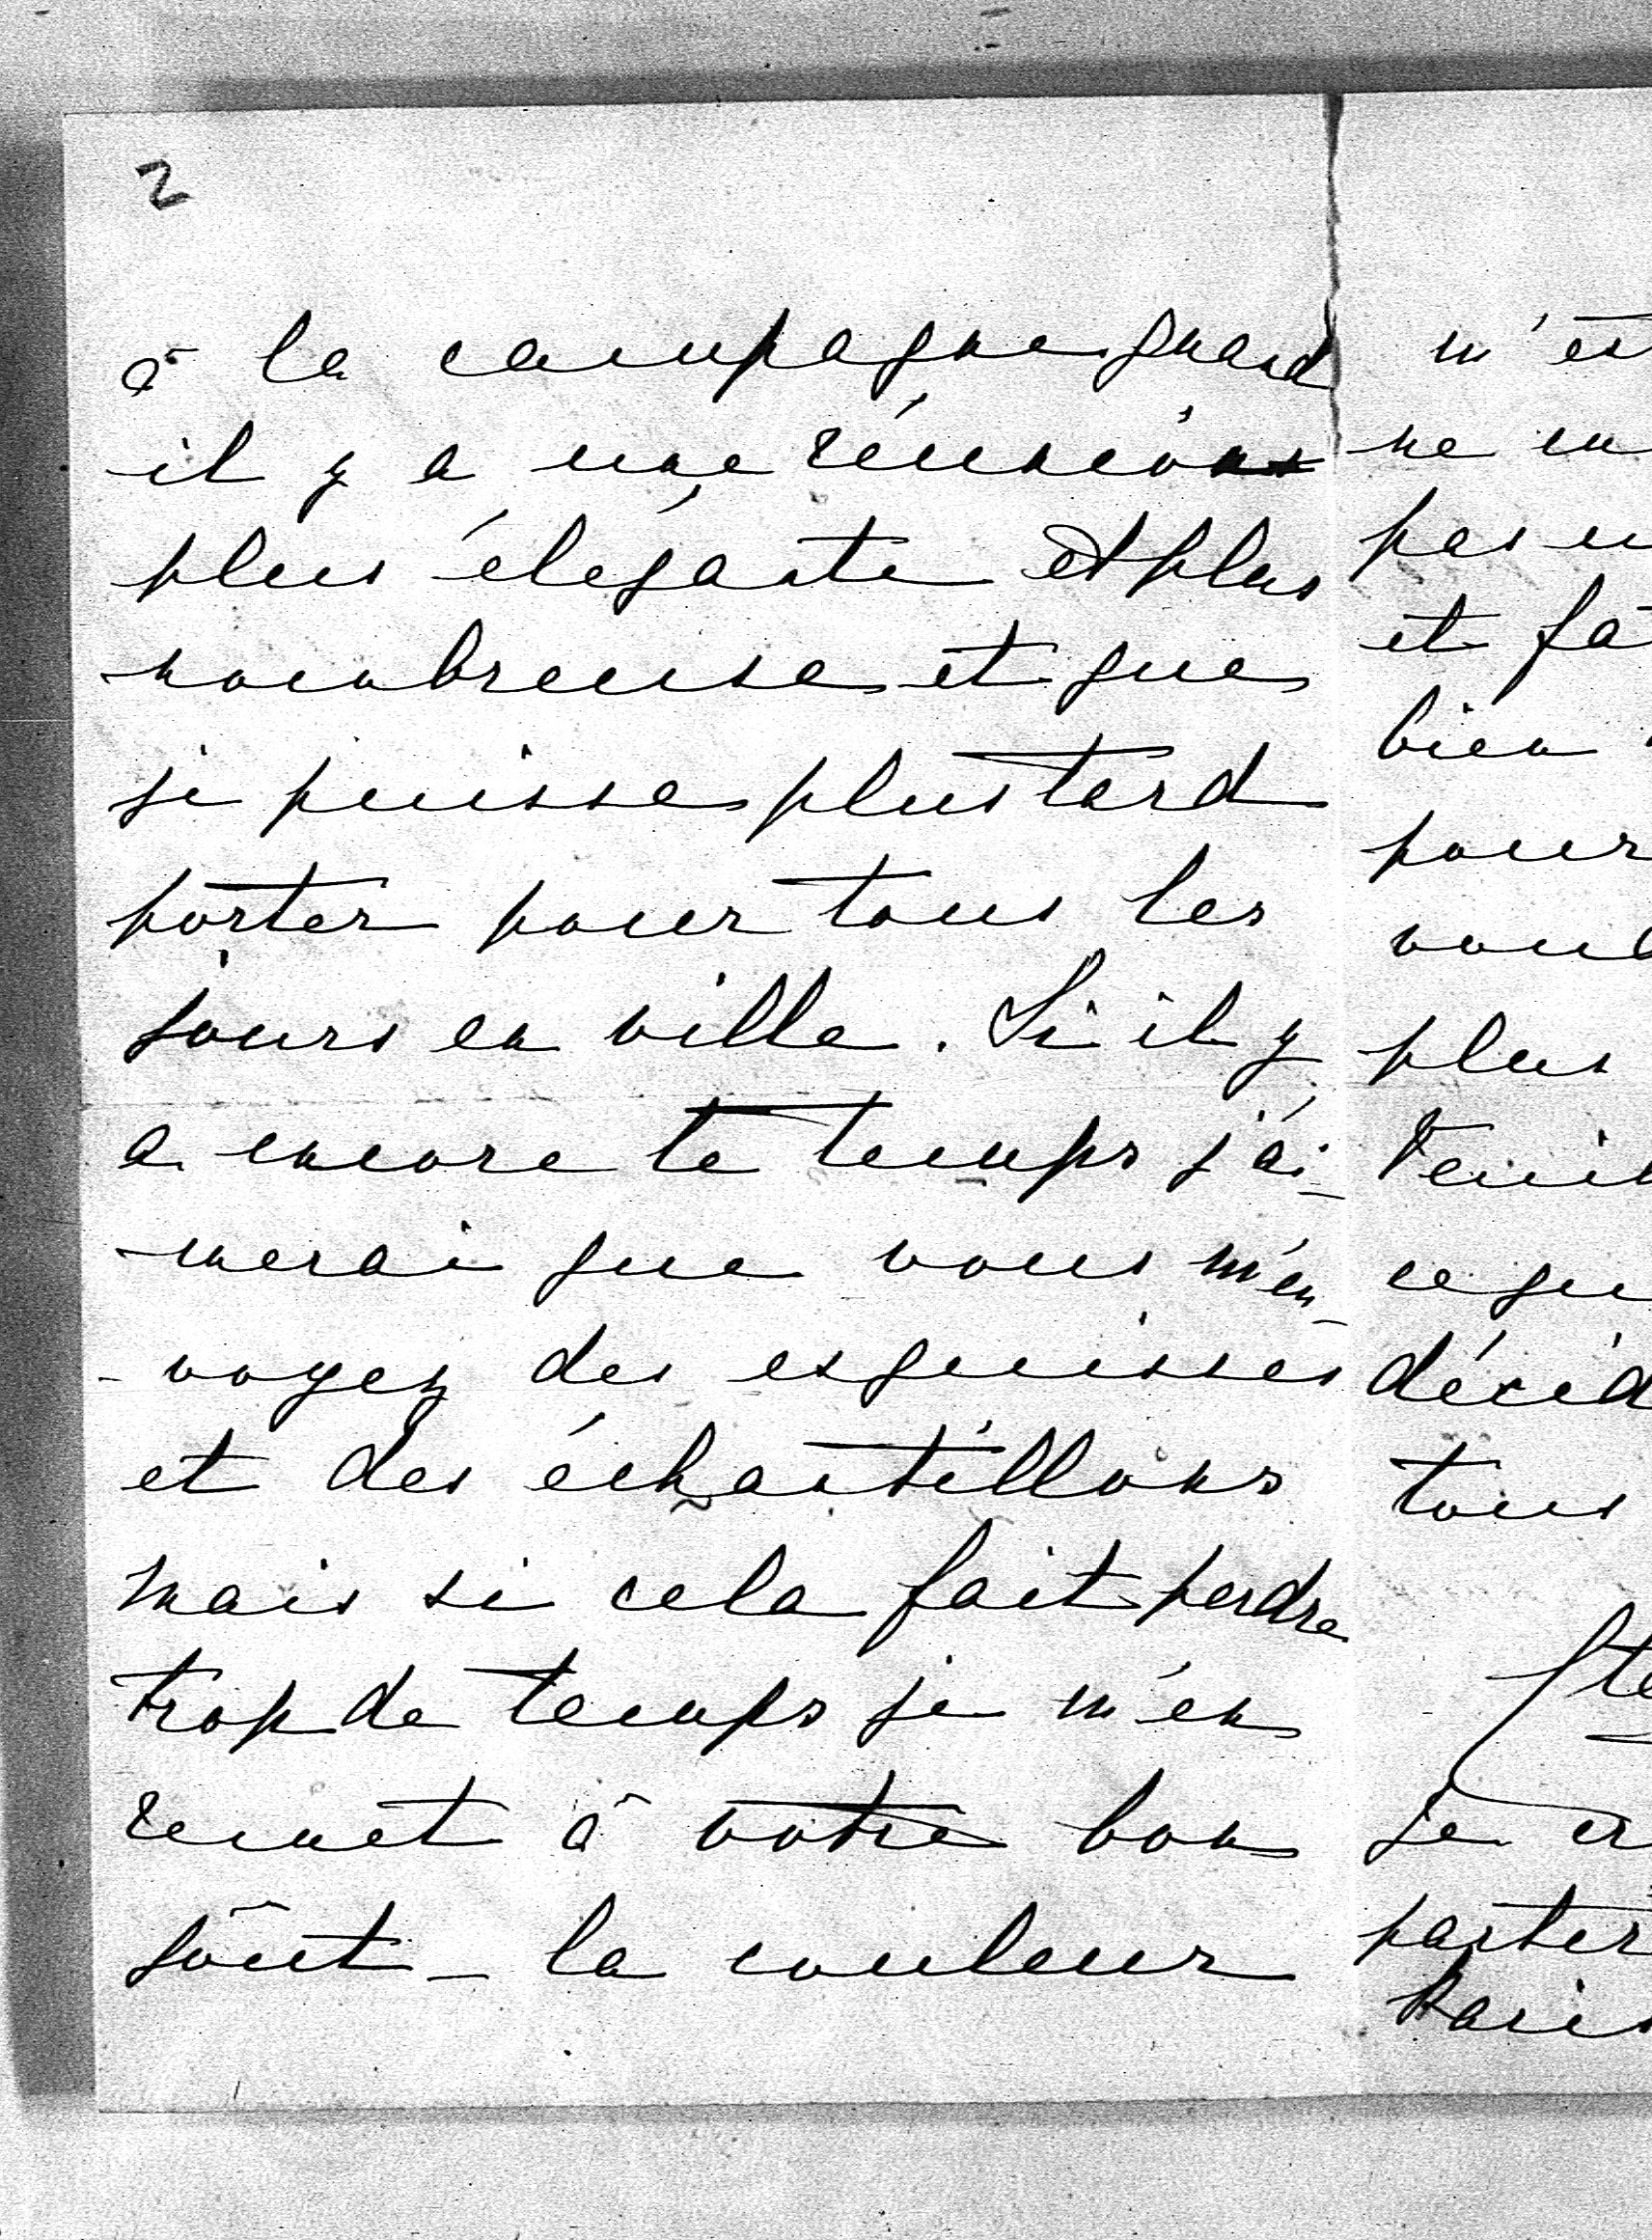 2
à la campagne quand
il y a une réunion
plus élégante et plus
nombreuse et que
je puisse plus tard
porter pour tous les
jours en ville. Si il y
a encore le temps j'ai-
merai que vous m'en-
-voyez des esquisses
et des échantillons
mais si cela fait perdre
trop de temps je m'en
remet à votre bon
goût - la couleur
m'est
ne
pas
et
bien
pour
plus
décid
tous
je
Paris